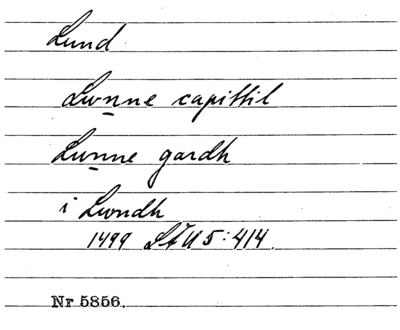 Lund
Lwnne capittil
Lunne gardh
i Lwndh
1499 StÜ 5:414.
Nr 5856.